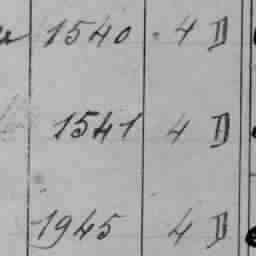 1540 4 D
1541 4 D
1945 4 D